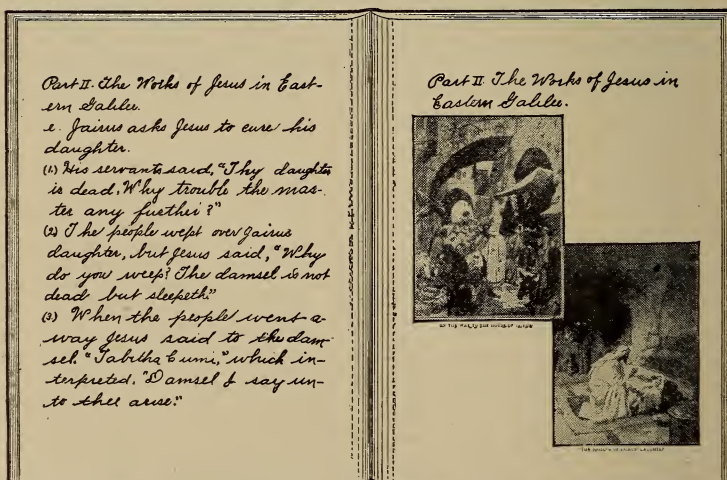 Part II. The Works of Jesus in East-
ern Galilee.
e. Jairus asks Jesus to cure his
daughter.
(1.) His servants said, "Thy daughter
is dead, Why trouble the mas-
ter any further?"
(2) The people wept over Jairus
daughter, but Jesus said, "Why
do you weep? The damsel is not
dead but sleepeth."
(3) When the people went a-
way Jesus said to the dam-
sel. "Tabitha Cumi," which in-
terpreted. "Damsel I say un-
to thee arise."
Part II. The Works of Jesus in
Eastern Galilee.
ON THE WAY TO THE HOUSE OF JAIRUS
"THE RAISING OF JAIRUS' DAUGHTER"